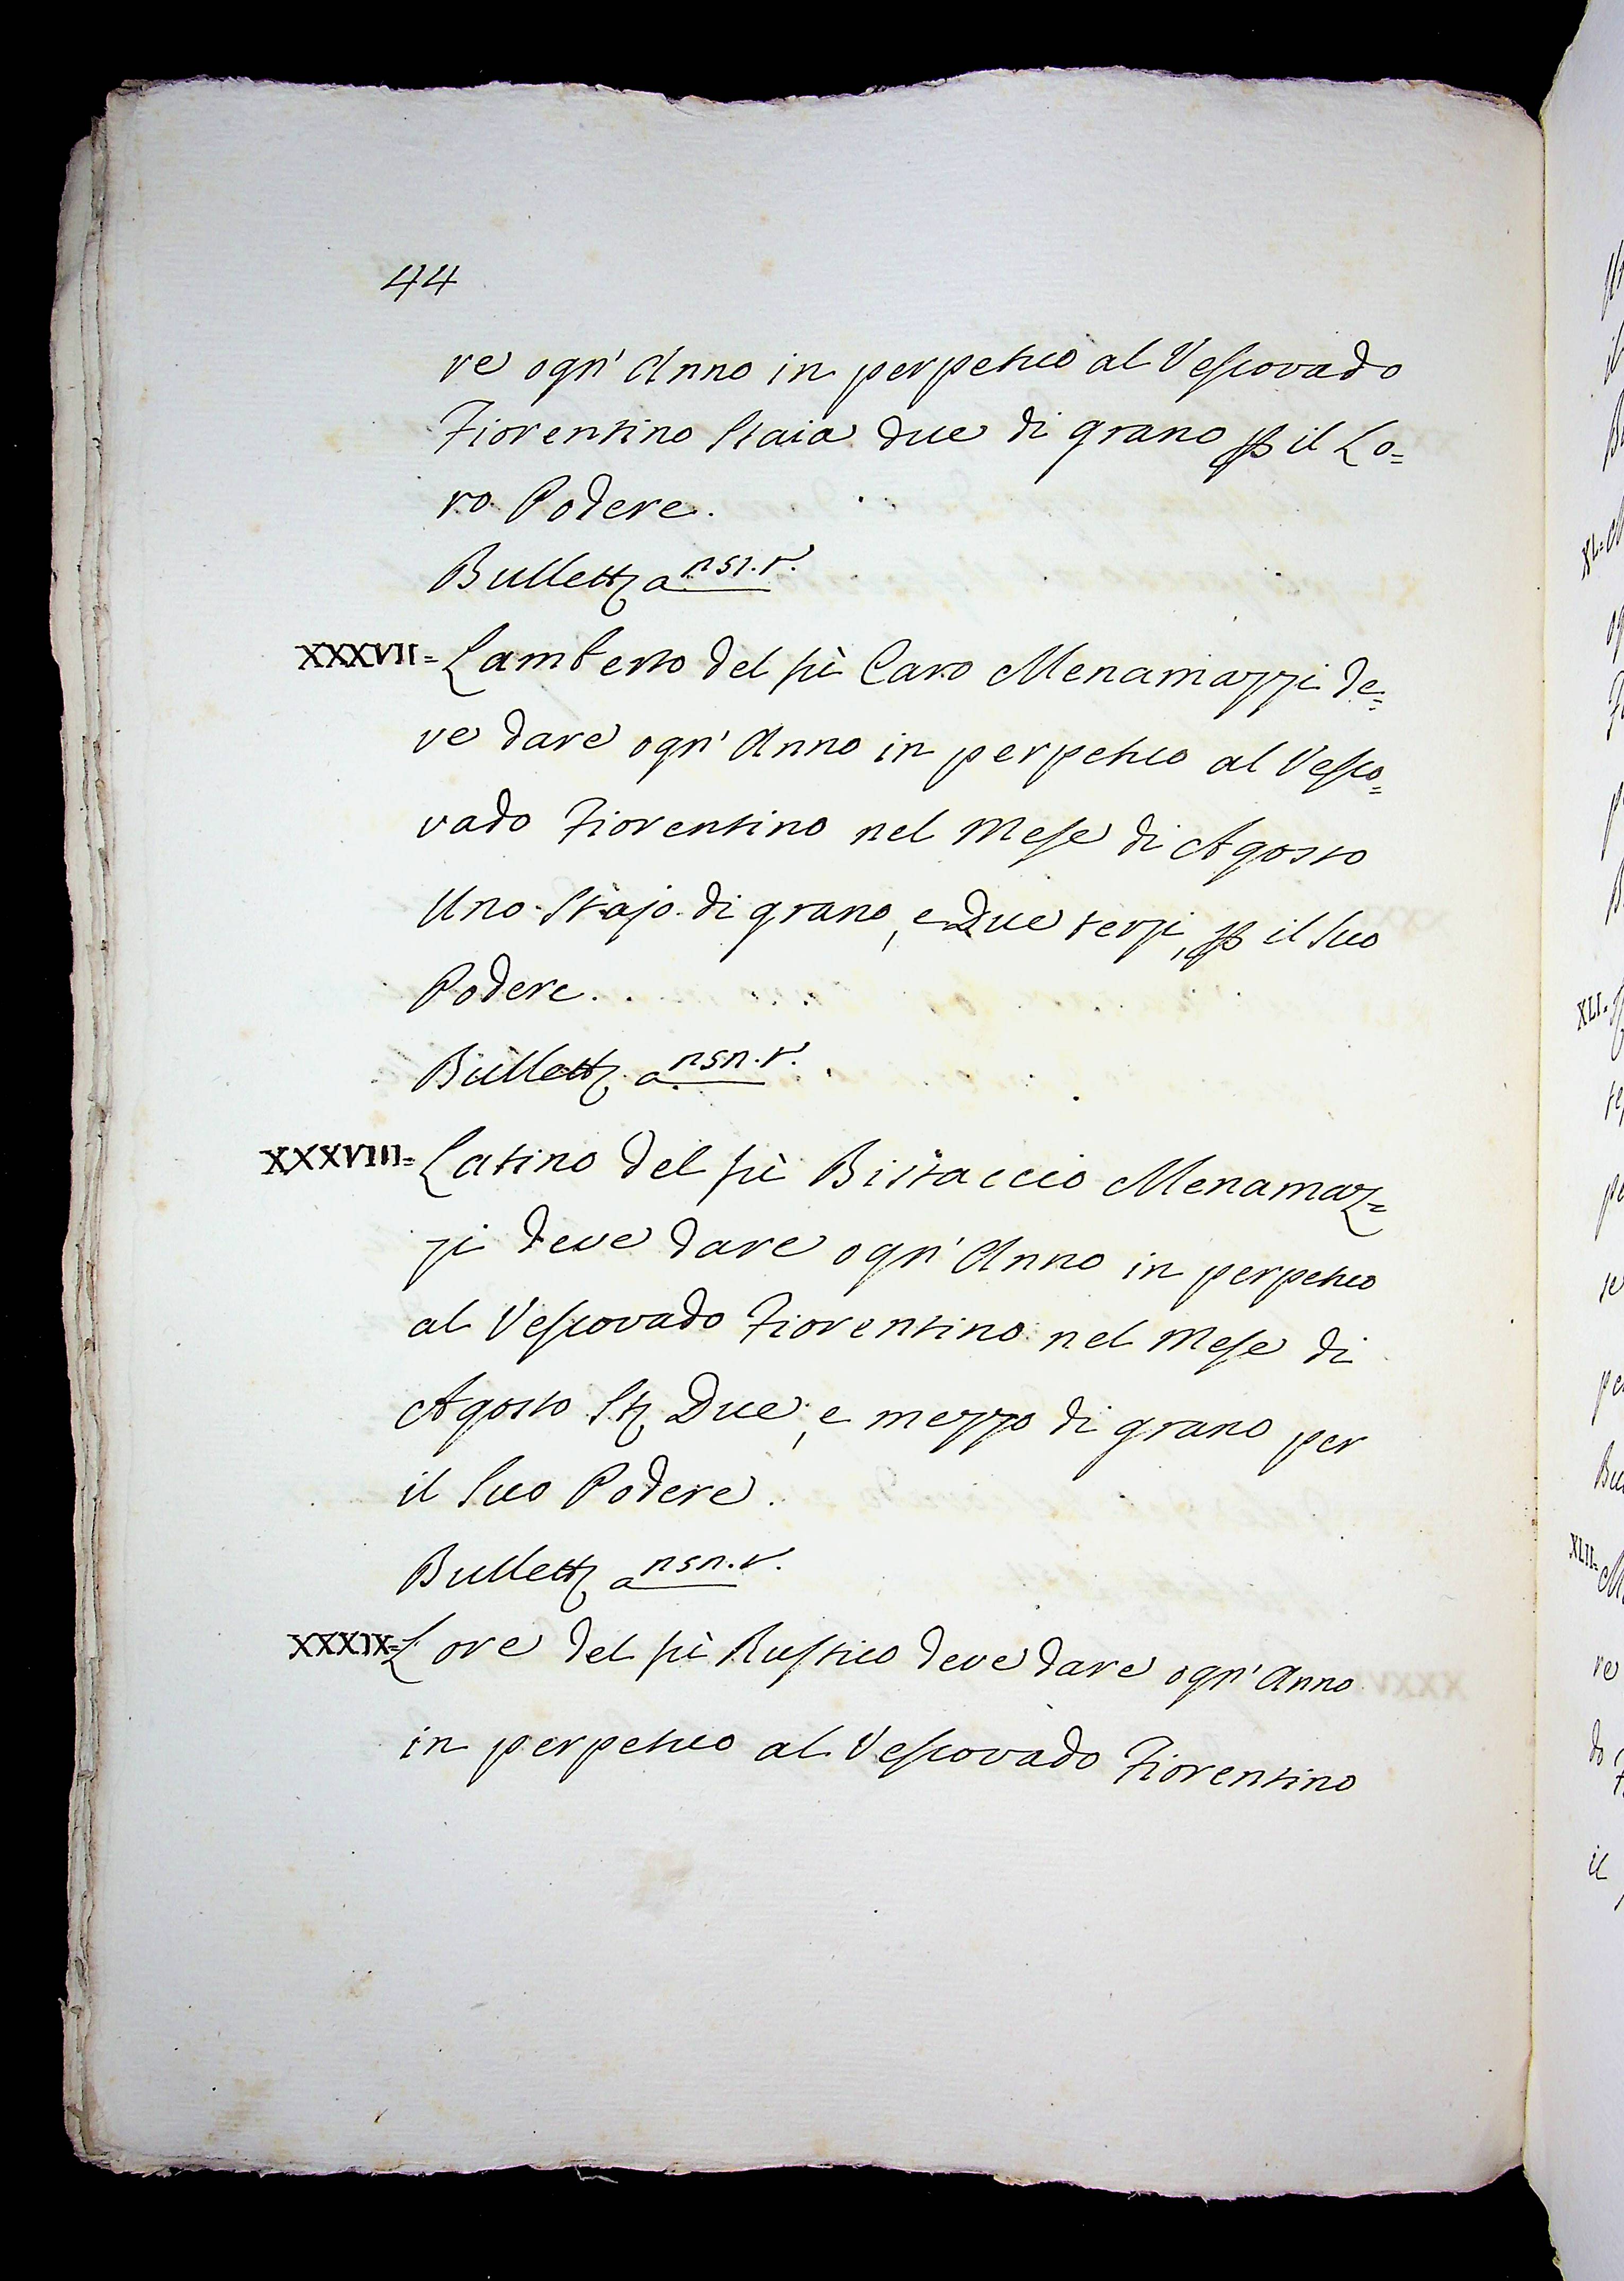 44
re ogn' Anno in perpetuo al Vescovado
Fiorentino Staia due di grano p il Lo=
ro Podere.
Bullett a nsn.r.
XXXVII= Lamberto del fù Caro Menamazzi de=
ve dare ogn' Anno in perpetuo al Vesco=
vado Fiorentino nel Mese di Agosto
Uno Stajo di grano, e Due terzi, p il Suo
Podere.
Bullett a nsn.r.
XXXVIII= Latino del fù Bistaccio Menamaz=
zi deve dare ogn' Anno in perpetuo
al Vescovado Fiorentino nel Mese di
Agosto St Due, e mezzo di grano per
il Suo Podere.
Bullett a nsn.r.
XXXIX= Lore del fù Rustico deve dare ogn' Anno
in perpetuo al Vescovado Fiorentino